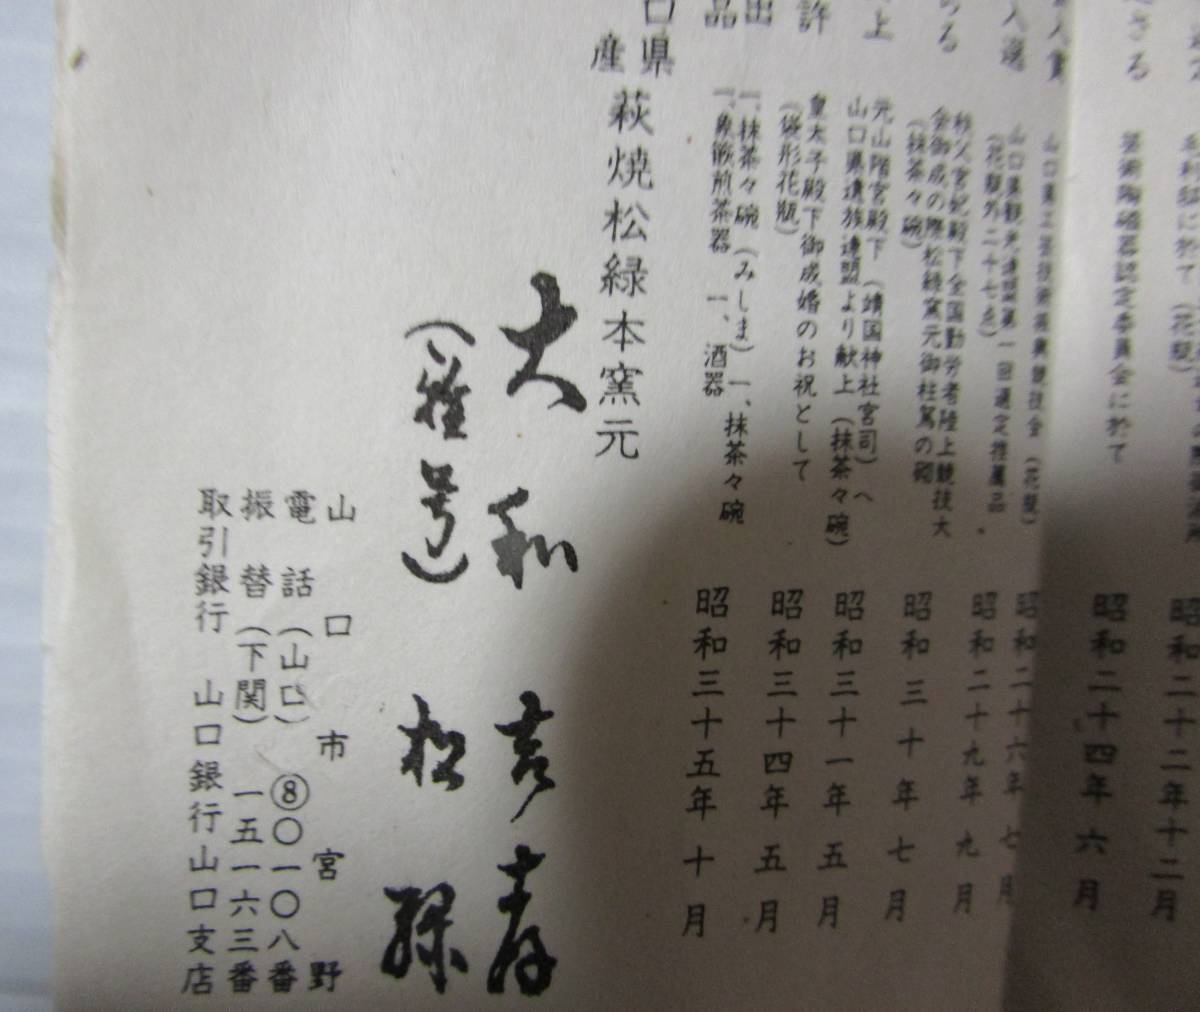 さる
芸術陶磁器認定委員会に於て
昭和二十二年十二月
昭和二十四年六月
入賞
山口県工芸技術振興競技会（花瓶）
昭和二十六年七月
入選
山口県観光連盟第一回選定推薦品
（花瓶外二十七点）
昭和二十九年九月
秩父宮妃殿下全国勤労者陸上競技大
会御成の際松緑窯元御枉駕の砌
（抹茶々碗）
昭和三十年七月
上
元山階宮殿下（靖国神社宮司）へ
山口県遺族連盟より献上（抹茶々碗）
昭和三十一年五月
許
皇太子殿下御成婚のお祝として
（袋形花瓶）
昭和三十四年五月
出品
一、抹茶々碗（みしま）一、抹茶々碗
一、象嵌煎茶器　一、酒器
昭和三十五年十月
口県産
萩焼松緑本窯元
大和
（雅号）松緑
山口市宮野
電話（山口）⑧〇一〇八番
振替（下関）一五一六三番
取引銀行　山口銀行山口支店